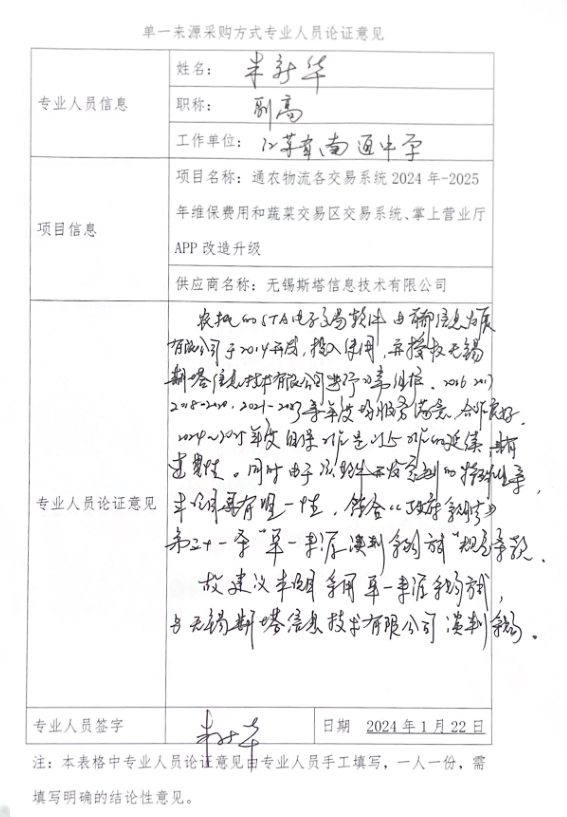 单一来源采购方式专业人员论证意见
专业人员信息
姓名：
新华
职称：
副高
工作单位：
江苏省南通中学
项目信息
项目名称：通农物流各交易系统 2024 年-2025
年维保费用和蔬菜交易区交易系统、掌上营业厅
APP 改造升级
供应商名称：无锡斯塔信息技术有限公司
专业人员论证意见
农批的STA电子交易软件由 信息发展
有限公司于2014开发，投入使用，并授权无锡
斯塔信息技术有限公司进行 维护。2016 2017
2018-2020，2021-2023等年度均服务满意，合作良好。
2024～2025年度 是 的延续，具有
连贯性。同时由于 软件开发 的特殊性等，
本项目具有唯一性，符合《政府采购法》
第三十一条“单一来源 采购方式”规定条款。
故建议本项目采用单一来源采购方式，
与无锡斯塔信息技术有限公司谈判采购。
专业人员签字
新华
日期 2024 年 1 月 22 日
注：本表格中专业人员论证意见由专业人员手工填写，一人一份，需
填写明确的结论性意见。